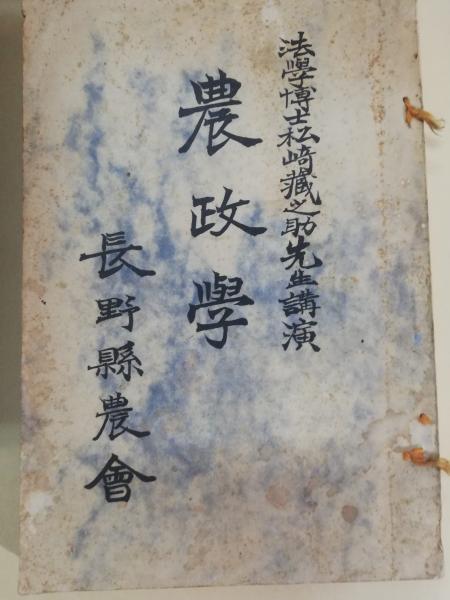 法學博士松崎藏之助先生講演
農政學
長野縣農會